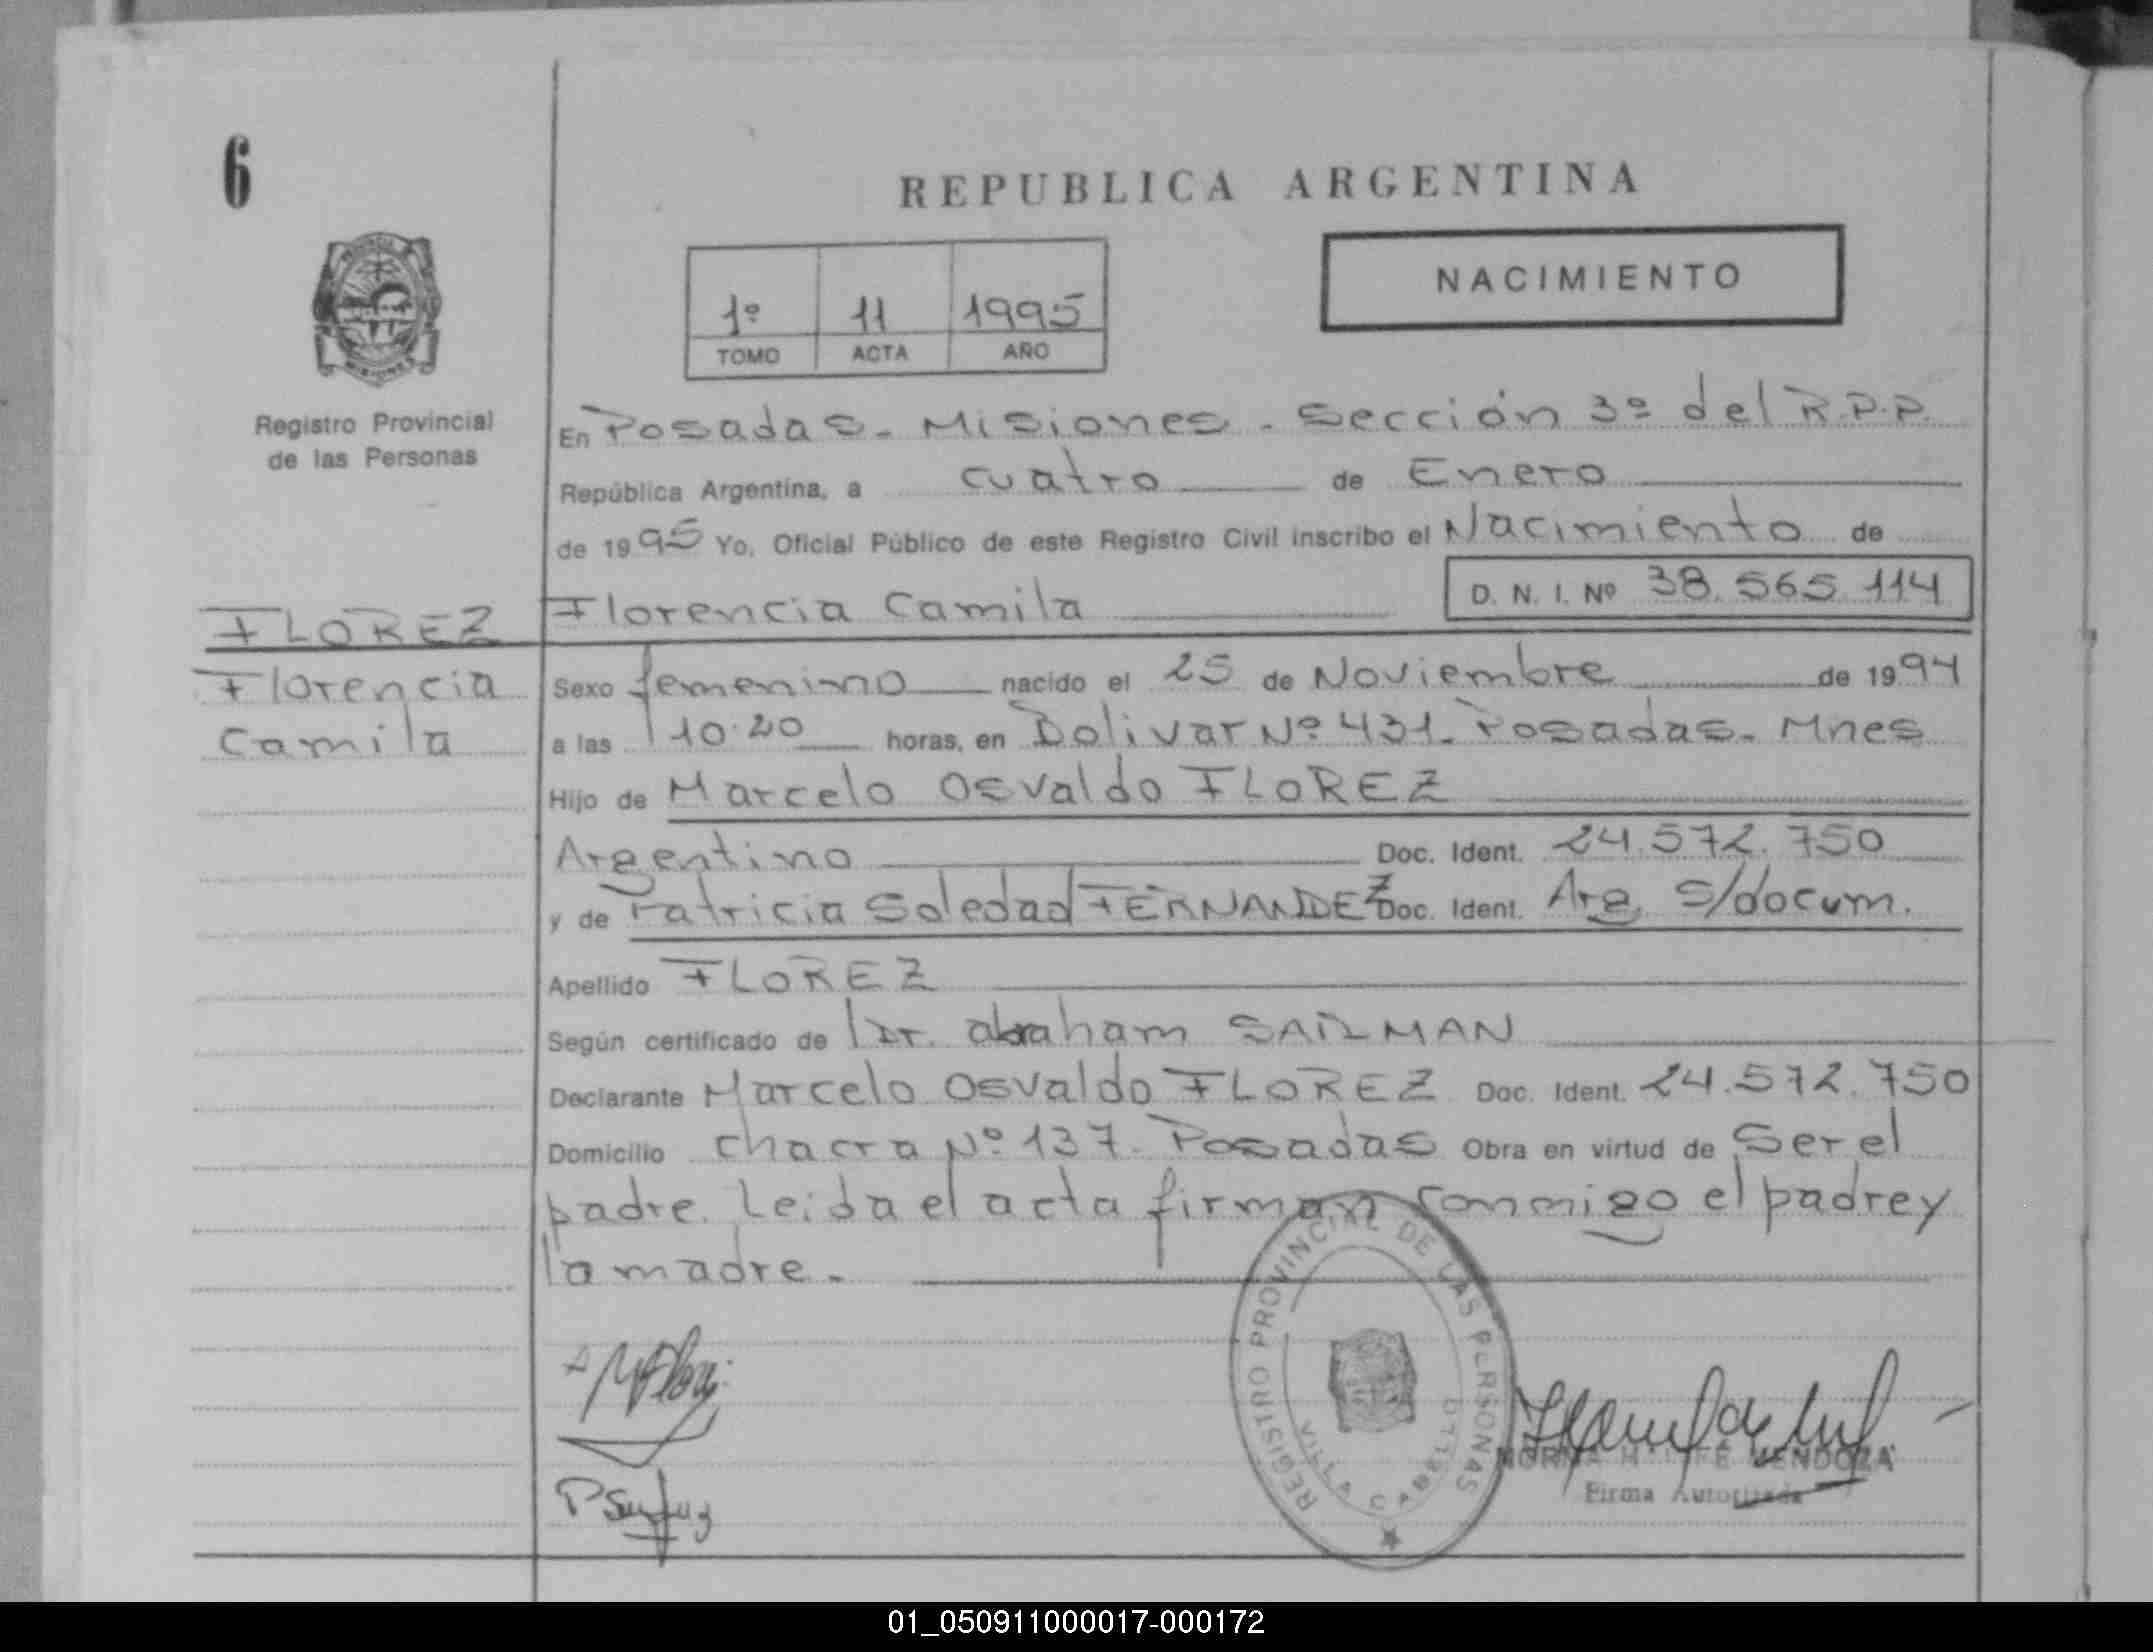 6
REPUBLICA ARGENTINA
NACIMIENTO
1º 11 1995
TOMO ACTA AÑO
Registro Provincial
de las Personas
En Posadas - Misiones - Sección 3º del R.P.P.
República Argentina, a cuatro de Enero
de 1995 Yo, Oficial Público de este Registro Civil inscribo el Nacimiento de
Florencia Camila D. N. I. Nº 38.565.114
FLOREZ
Florencia
Camila
Sexo femenino nacido el 25 de Noviembre de 1994
a las 10.20 horas, en Bolivar Nº 431 - Posadas - Mnes
Hijo de Marcelo Osvaldo FLOREZ
Argentino Doc. Ident. 24.572.750
y de Patricia Soledad FERNANDEZ Doc. Ident. Arg. S/docum.
Apellido FLOREZ
Según certificado de Dr. abraham
Declarante Marcelo Osvaldo FLOREZ Doc. Ident. 24.572.750
Domicilio chacra Nº 137 - Posadas Obra en virtud de Ser el
padre. Leida el acta firman conmigo el padre y
la madre.-
REGISTRO PROVINCIAL DE LAS PERSONAS
VILLA CABELLO
NORMA MENDOZA
Firma Autorizada
01_050911000017-000172